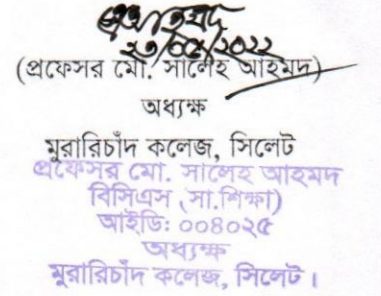 ২৩/০৫/২০২২
(প্রফেসর মো. সালেহ আহমদ)
অধ্যক্ষ
মুরারিচাঁদ কলেজ, সিলেট
প্রফেসর মো. সালেহ আহমদ
বিসিএস (সা.শিক্ষা)
আইডি: ০০৪০২৫
অধ্যক্ষ
মুরারিচাঁদ কলেজ, সিলেট।